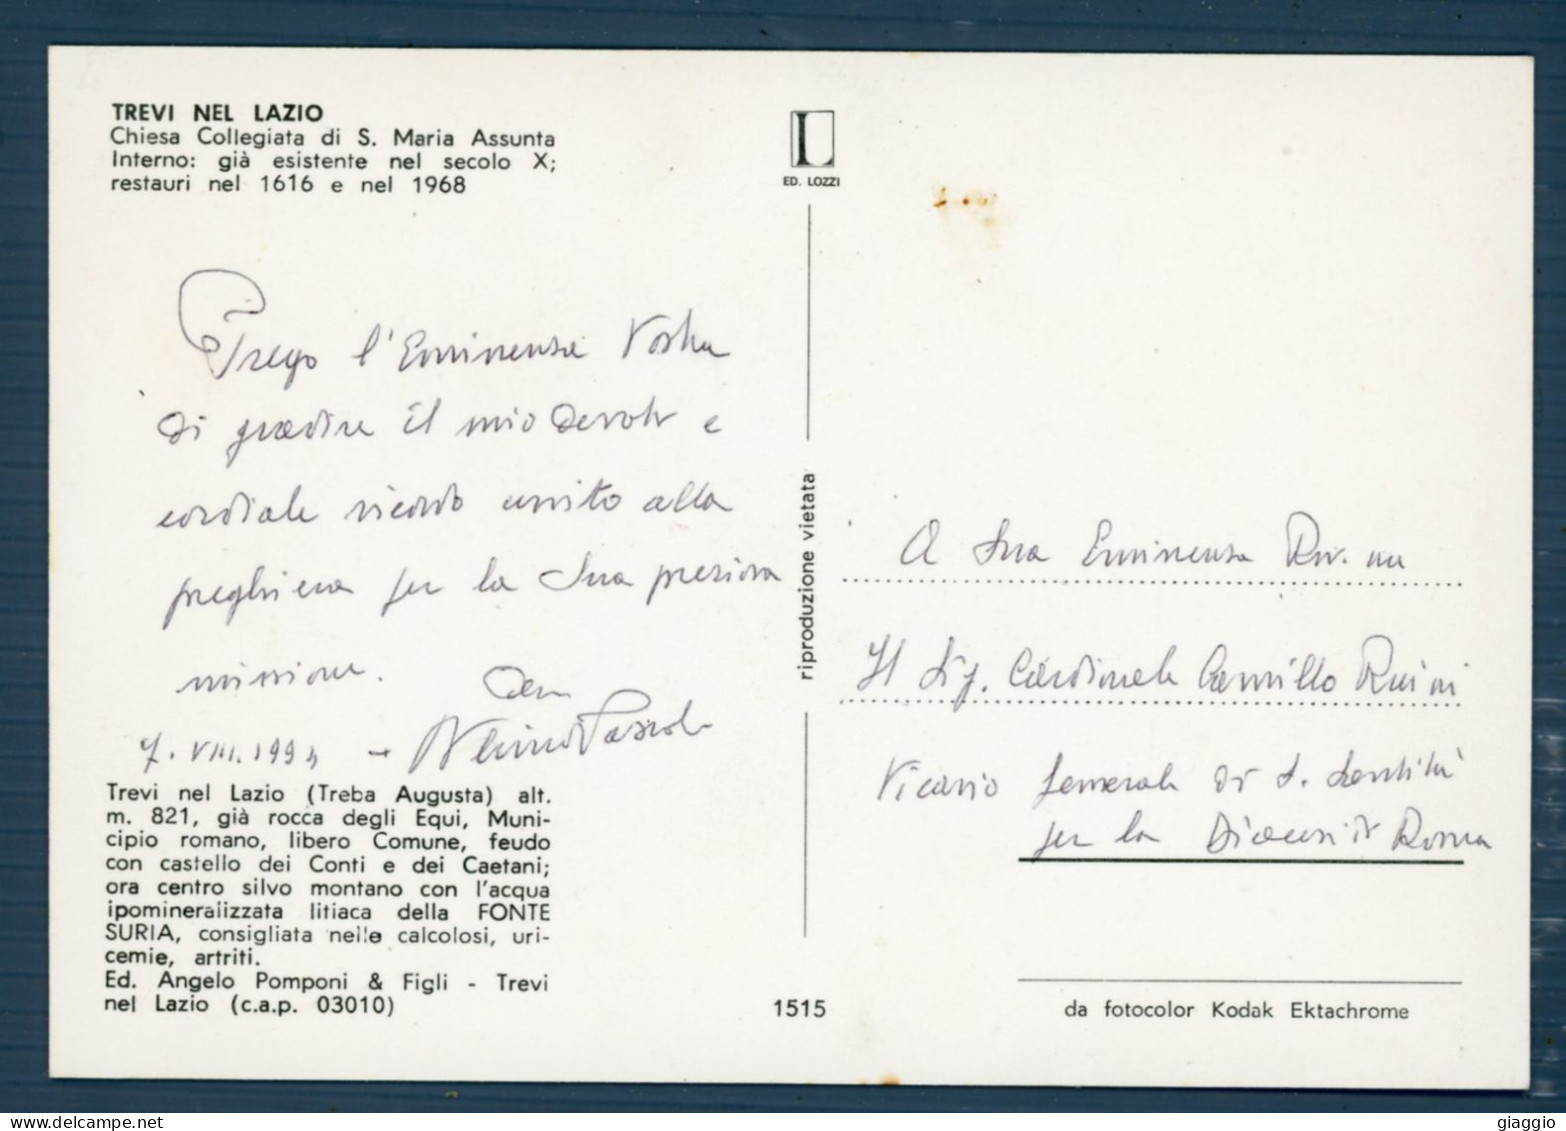 TREVI NEL LAZIO
Chiesa Collegiata di S. Maria Assunta
Interno: già esistente nel secolo X;
restauri nel 1616 e nel 1968
Prego l'Eminenza Vostra
di gradire il mio devoto e
cordiale ricordo unito alla
preghiera per la Sua preziosa
missione.
7. VIII. 1994 -
Trevi nel Lazio (Treba Augusta) alt.
m. 821, già rocca degli Equi, Muni-
cipio romano, libero Comune, feudo
con castello dei Conti e dei Caetani;
ora centro silvo montano con l'acqua
ipomineralizzata litiaca della FONTE
SURIA, consigliata nelle calcolosi, uri-
cemie, artriti.
Ed. Angelo Pomponi & Figli - Trevi
nel Lazio (c.a.p. 03010)
L
ED. LOZZI
riproduzione vietata
1515
A Sua Eminenza Rev.ma
Il Sig. Cardinale Camillo Ruini
Vicario Generale di S. Santità
per la Diocesi di Roma
da fotocolor Kodak Ektachrome
giaggio